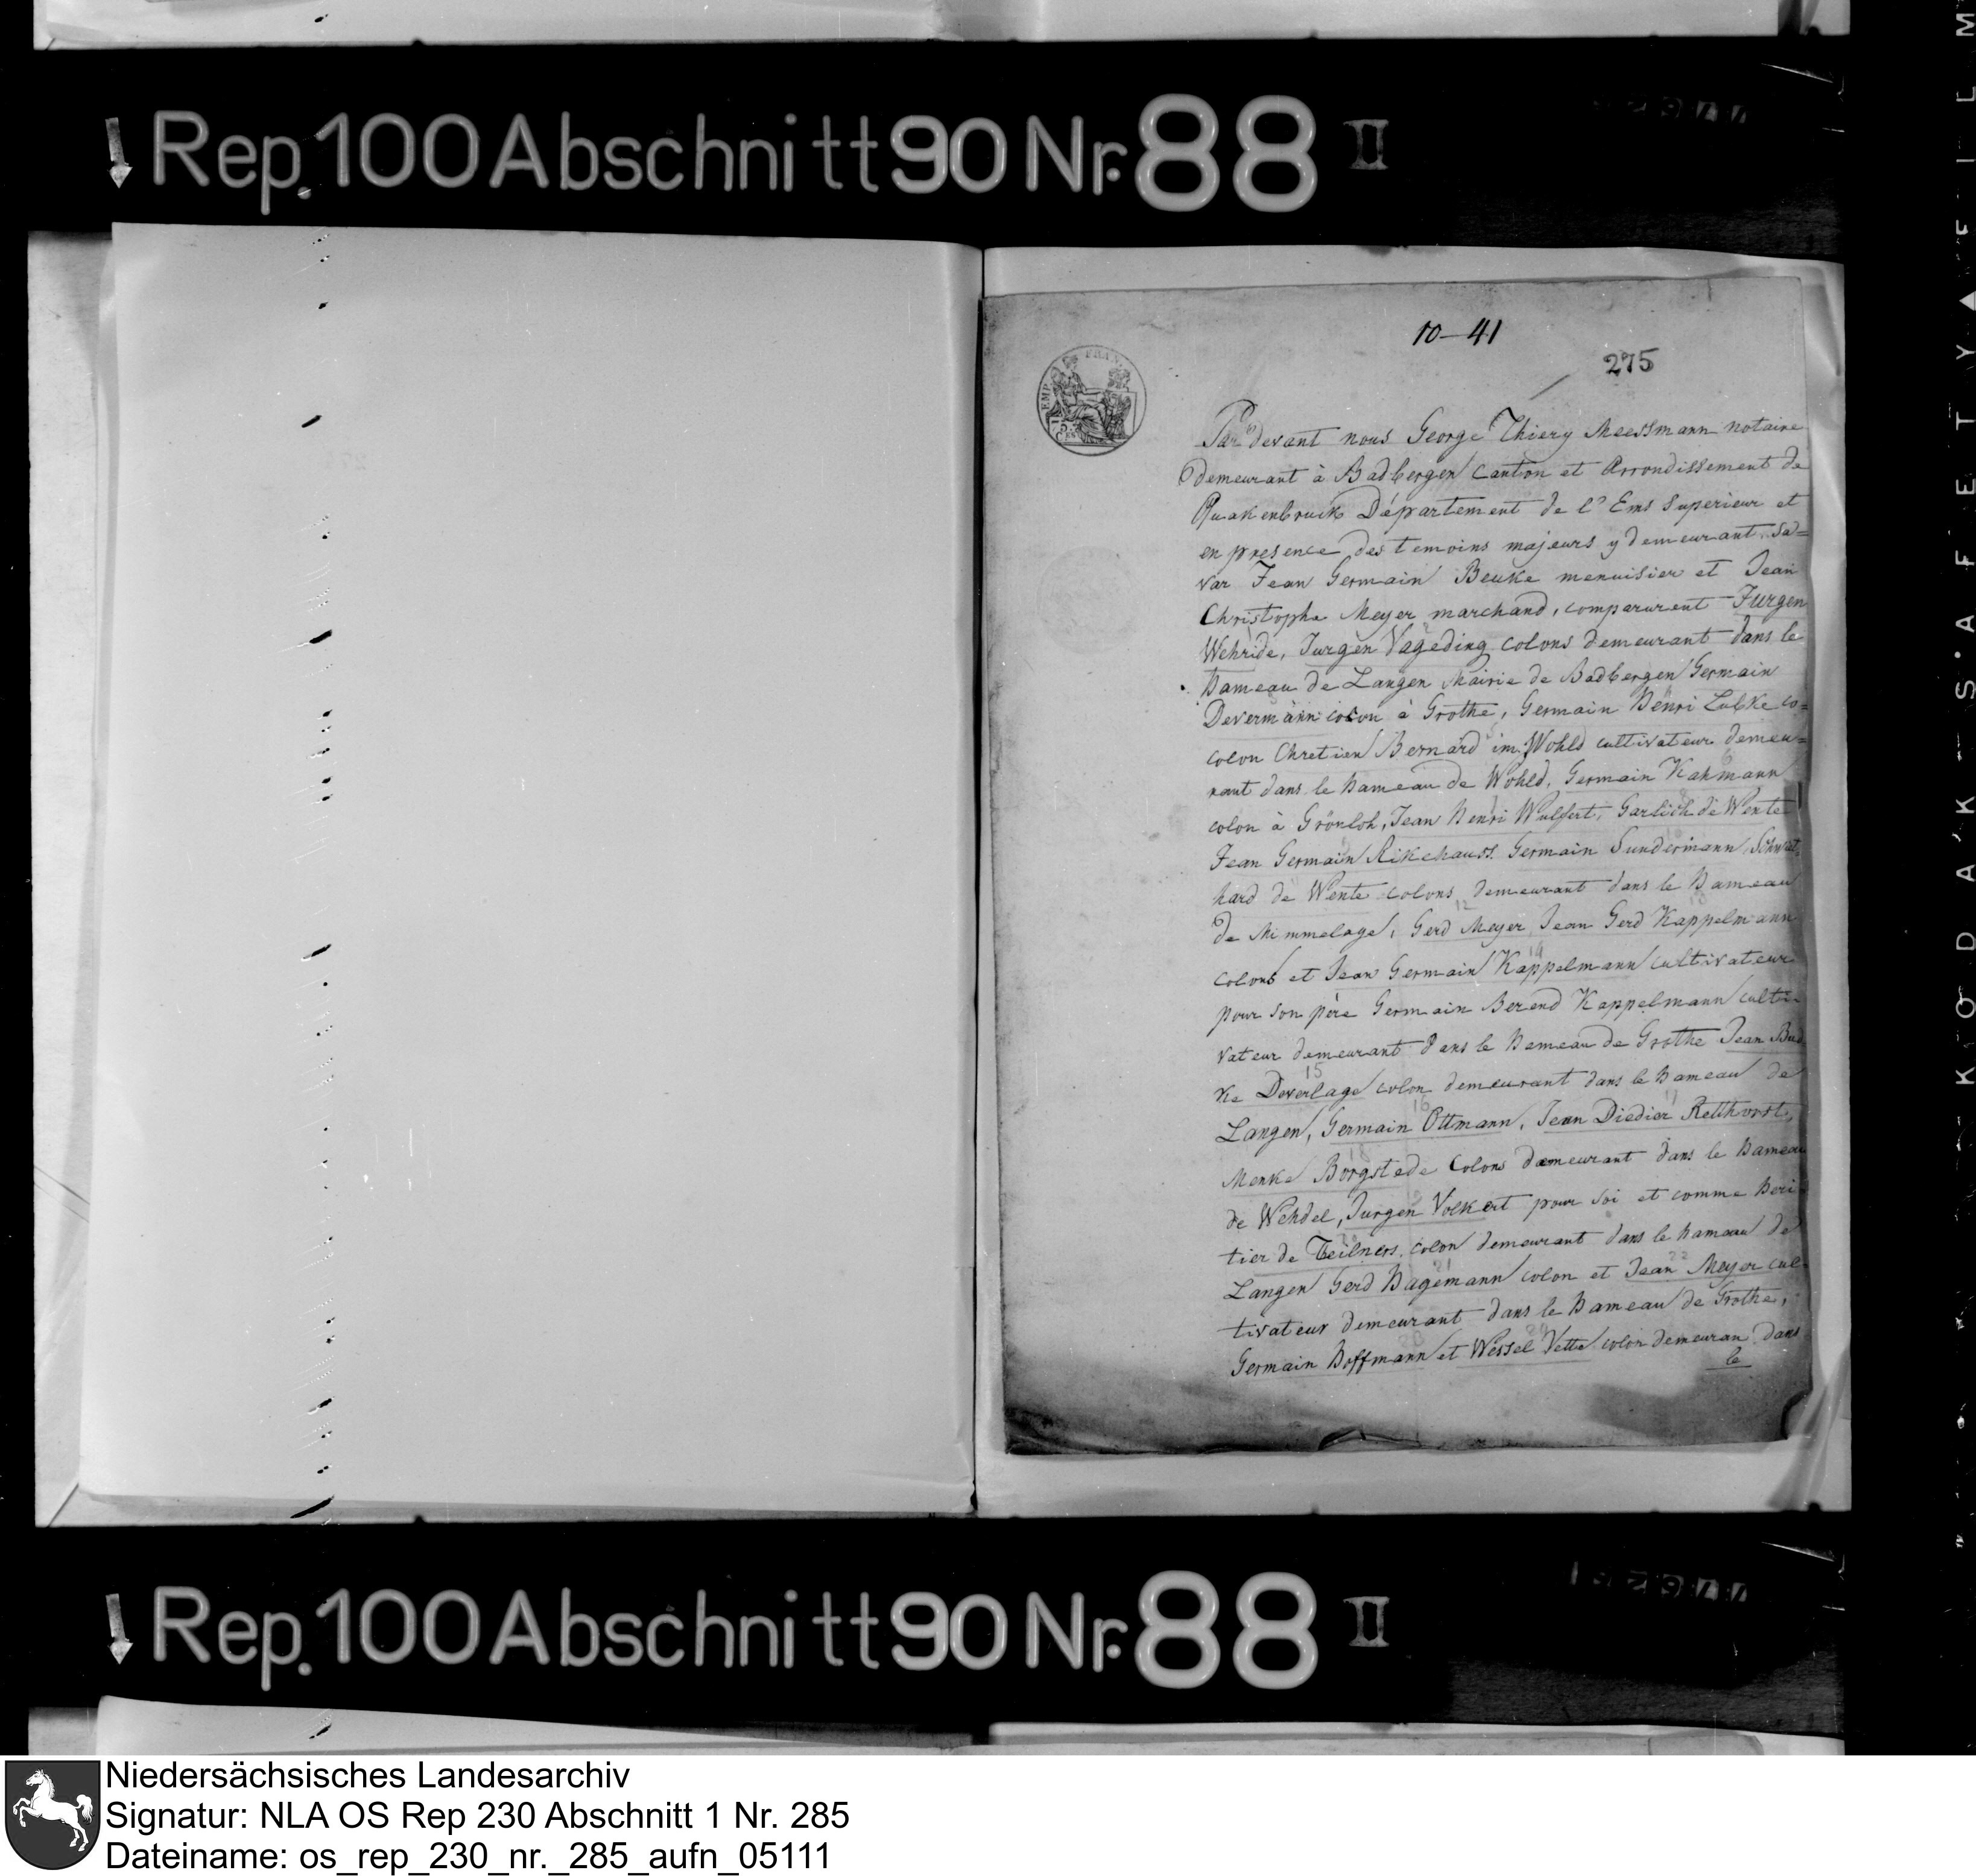 Rep. 100 Abschnitt 90 Nr. 88 II
10-41
275
EMP. FRAN.
75
CEN
Par devant nous George Thiery Meessmann notaire
demeurant à Badbergen canton et Arrondissement de
Quakenbruck Département de l'Ems Superieur et
en presence des temoins majeurs y demeurant sa=
var Jean Germain Beuke menuisier et Jean
Christophe Meyer marchand, comparurent Jurgen
Wehride, Jurgen Vageding colons demeurant dans le
hameau de Langen Mairie de Badbergen Germain
Devermann colon à Grothe, Germain Henri Lubke co=
colon Chretien Bernard im Wohld cultivateur demeu=
rant dans le hameau de Wohld, Germain Kahmann
colon à Grönloh, Jean Henri Wulfert, Garlich de Wente
Jean Germain Rikehauss Germain Sundermann,
hard de Wente colons demeurant dans le hameau
12
de Mimmelage, Gerd Meyer Jean Gerd Kappelmann
14
colons et Jean Germain Kappelmann cultivateur
pour son père Germain Berend Kappelmann culti-
vateur demeurant dans le hameau de Grothe Jean
15
ke Deverlage colon demeurant dans le hameau de
16
Langen, Germain Ottmann, Jean Diedier Relthorst,
18
Menke Borgstede colons demeurant dans le hameau
de Wehdel, Jurgen Volkert pour soi et comme heri
tier de Teilners colon demeurant dans le hameau de
21 22
Langen Gerd Hagemann colon et Jean Meyer cul
tivateur demeurant dans le hameau de Grothe,
Germain Hoffmann et Wessel Vette colon demeuran dans
le
Rep. 100 Abschnitt 90 Nr. 88 II
KODAK SAFETY FILM
Niedersächsisches Landesarchiv
Signatur: NLA OS Rep 230 Abschnitt 1 Nr. 285
Dateiname: os_rep_230_nr._285_aufn_05111